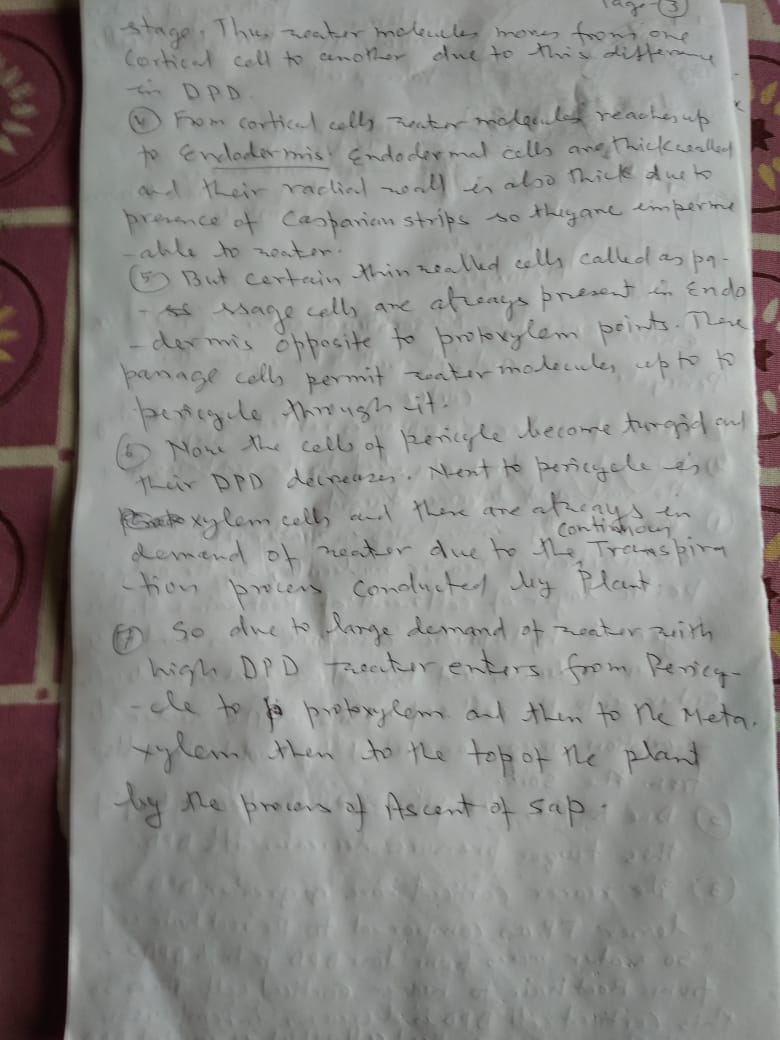 Page-(3)
stage. Thus water molecules moves from one
Cortical cell to another due to this difference
in DPD.
(4) From cortical cells water molecules reaches up
to Endodermis. Endodermal cells are thickwalled
and their radial wall is also thick due to
presence of Casparian strips so they are imperme
-able to water.
(5) But certain thin walled cells called as pa-
-ssage cells are always present in Endo
-dermis opposite to protoxylem points. These
passage cells permit water molecules up to to
pericycle through it.
(6) Now the cells of Pericycle become turgid and
their DPD decreases. Next to pericycle is
xylem cells and there are always in
continuous
demand of water due to the Transpira
-tion process conducted by Plant.
(7) So due to large demand of water with
high DPD water enters from Pericy-
-cle to protoxylem and then to the Meta.
xylem then to the top of the plant
by the process of Ascent of sap.